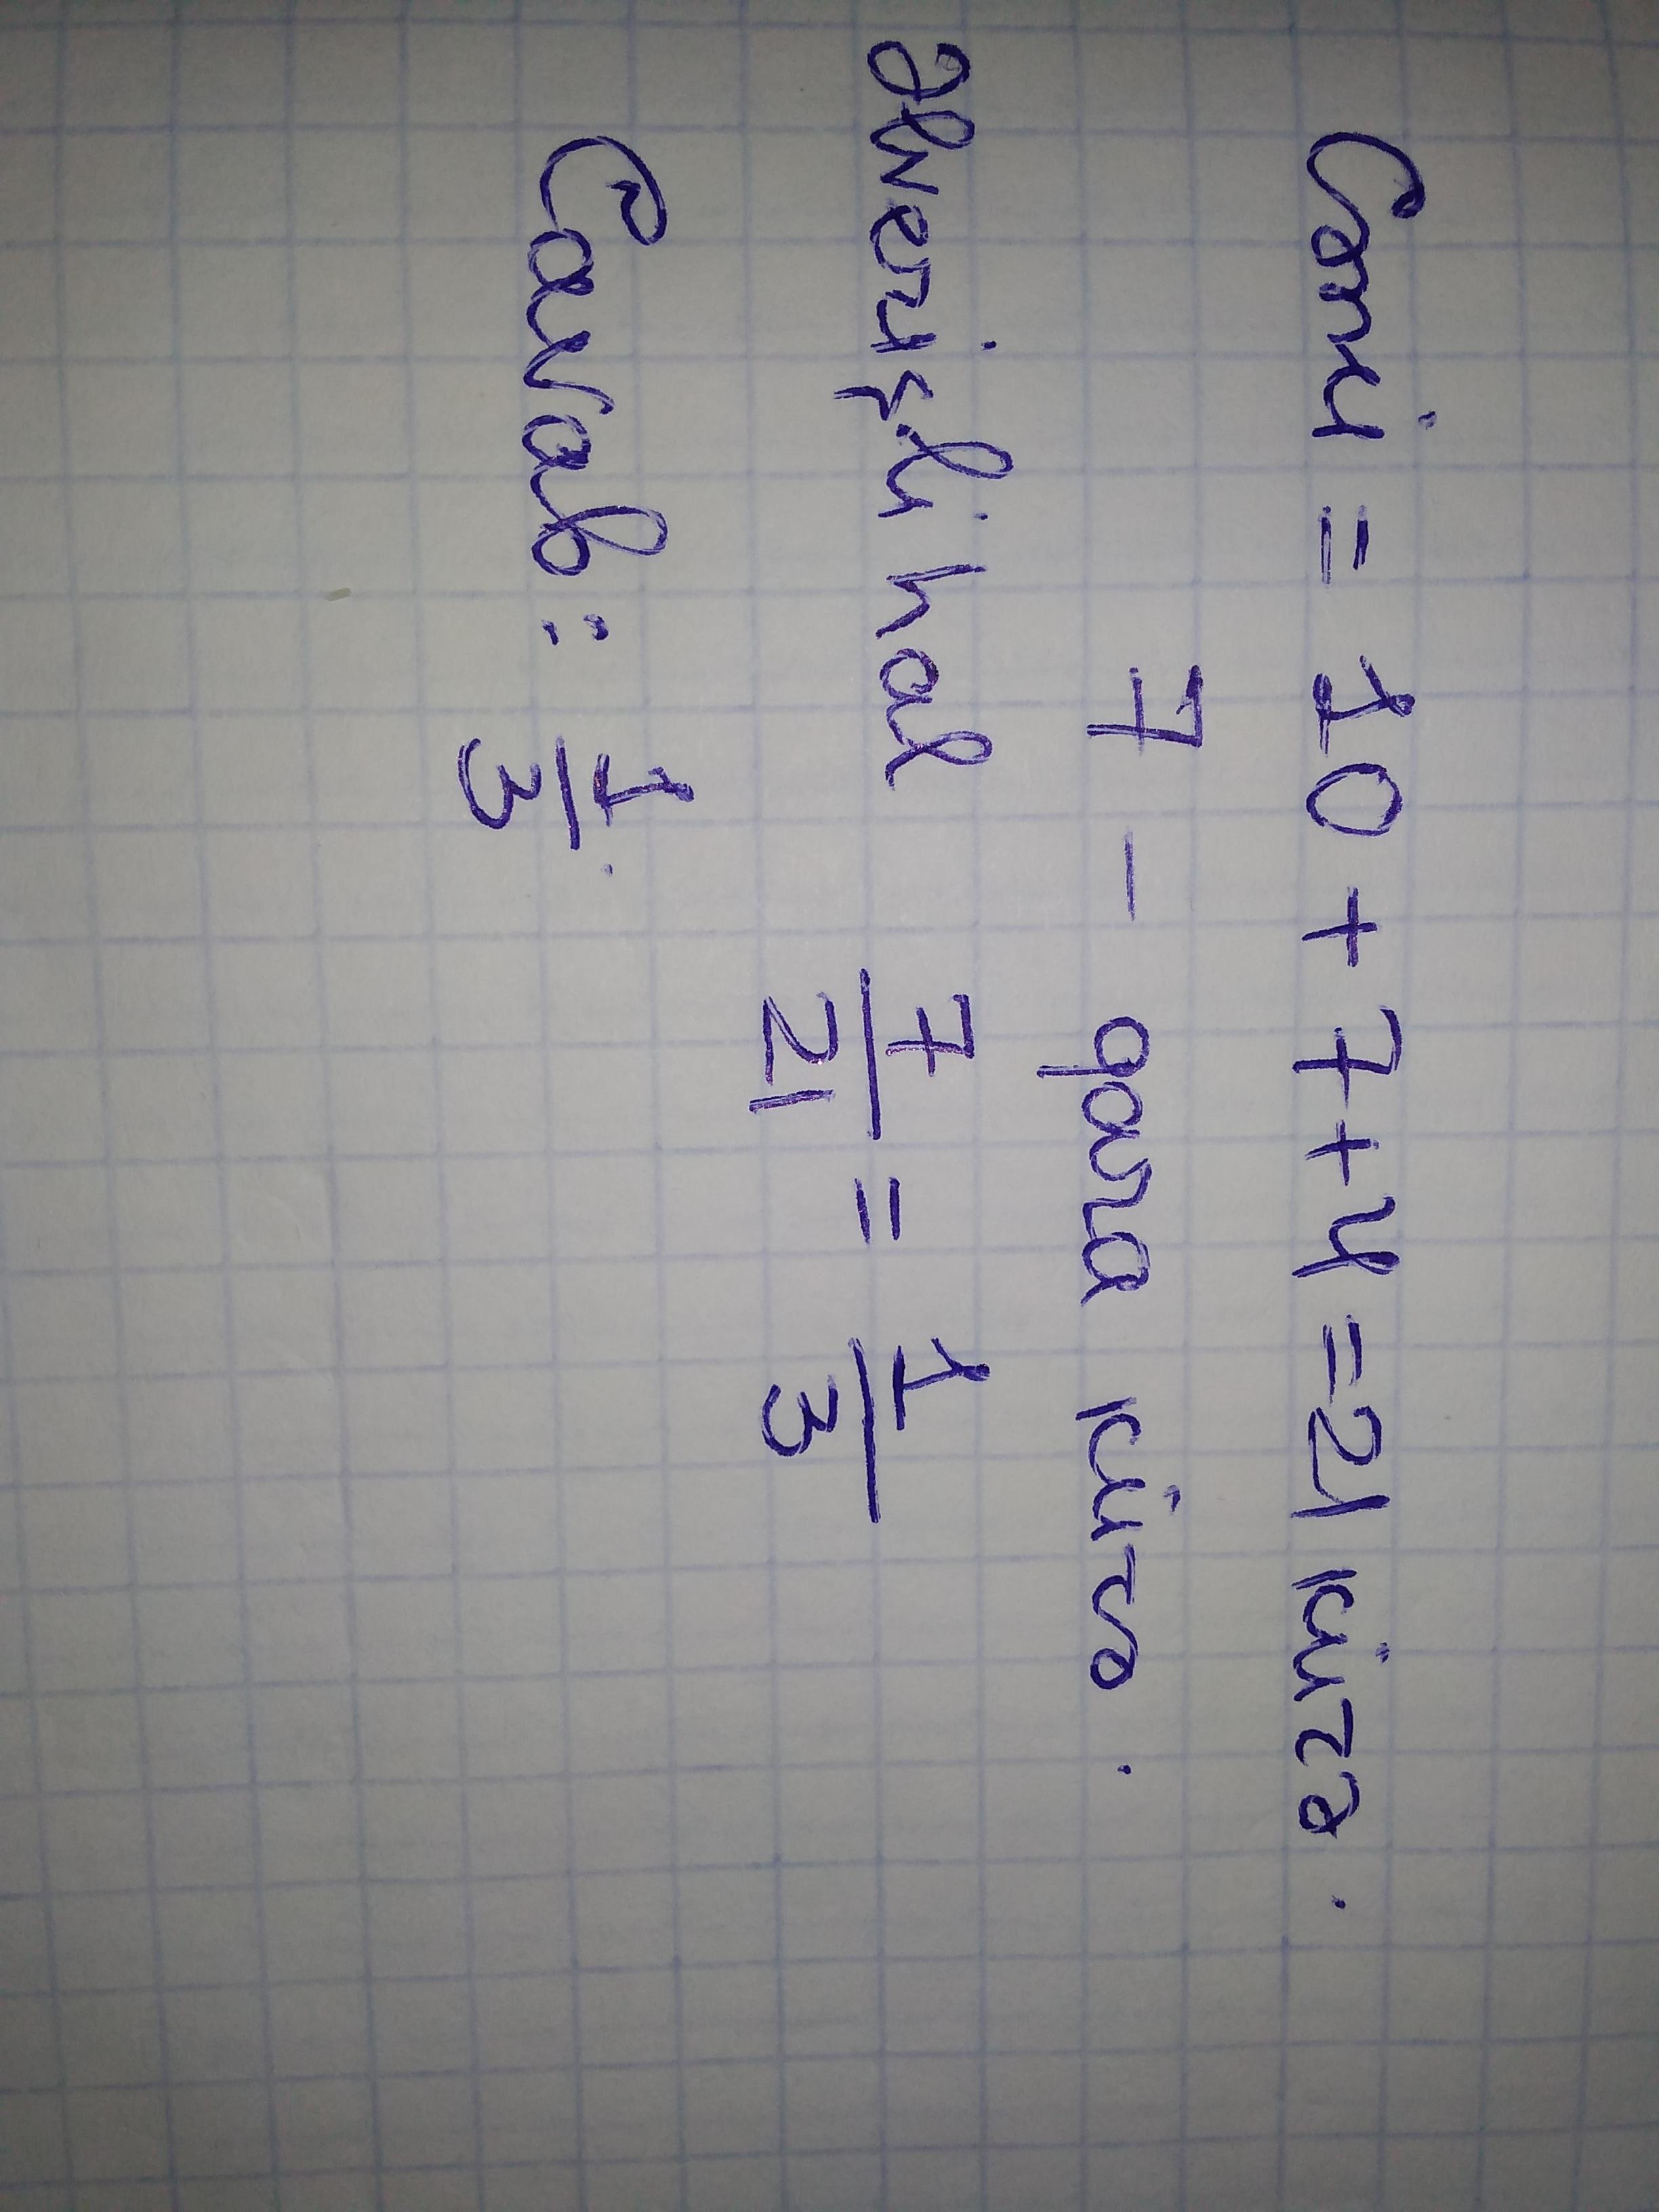 Cəmi = 10 + 7 + 4 = 21 kürə.
7 - qara kürə.
Əlverişli hal 7/21 = 1/3
Cavab: 1/3.